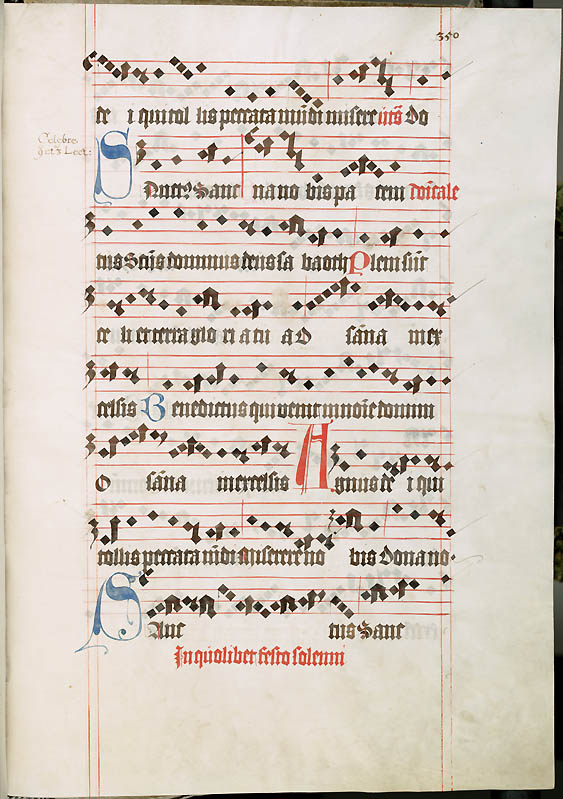 350
de i qui tol lis peccata mūdi misere utš Do
Celebre
S Anct⁹ Sanc na no bis pa cem doīcale
tus Scūs dominus deus sa baoth Pleni sūt
ce li et terra glo ri a tu a O sāna in ex
celsis B enedictus qui venit in noīe domini
O sāna in excelsis A gnus de i qui
tollis peccata mūdi Miserere no bis Dona no
S Anc tus Sanc
In quolibet festo solenni